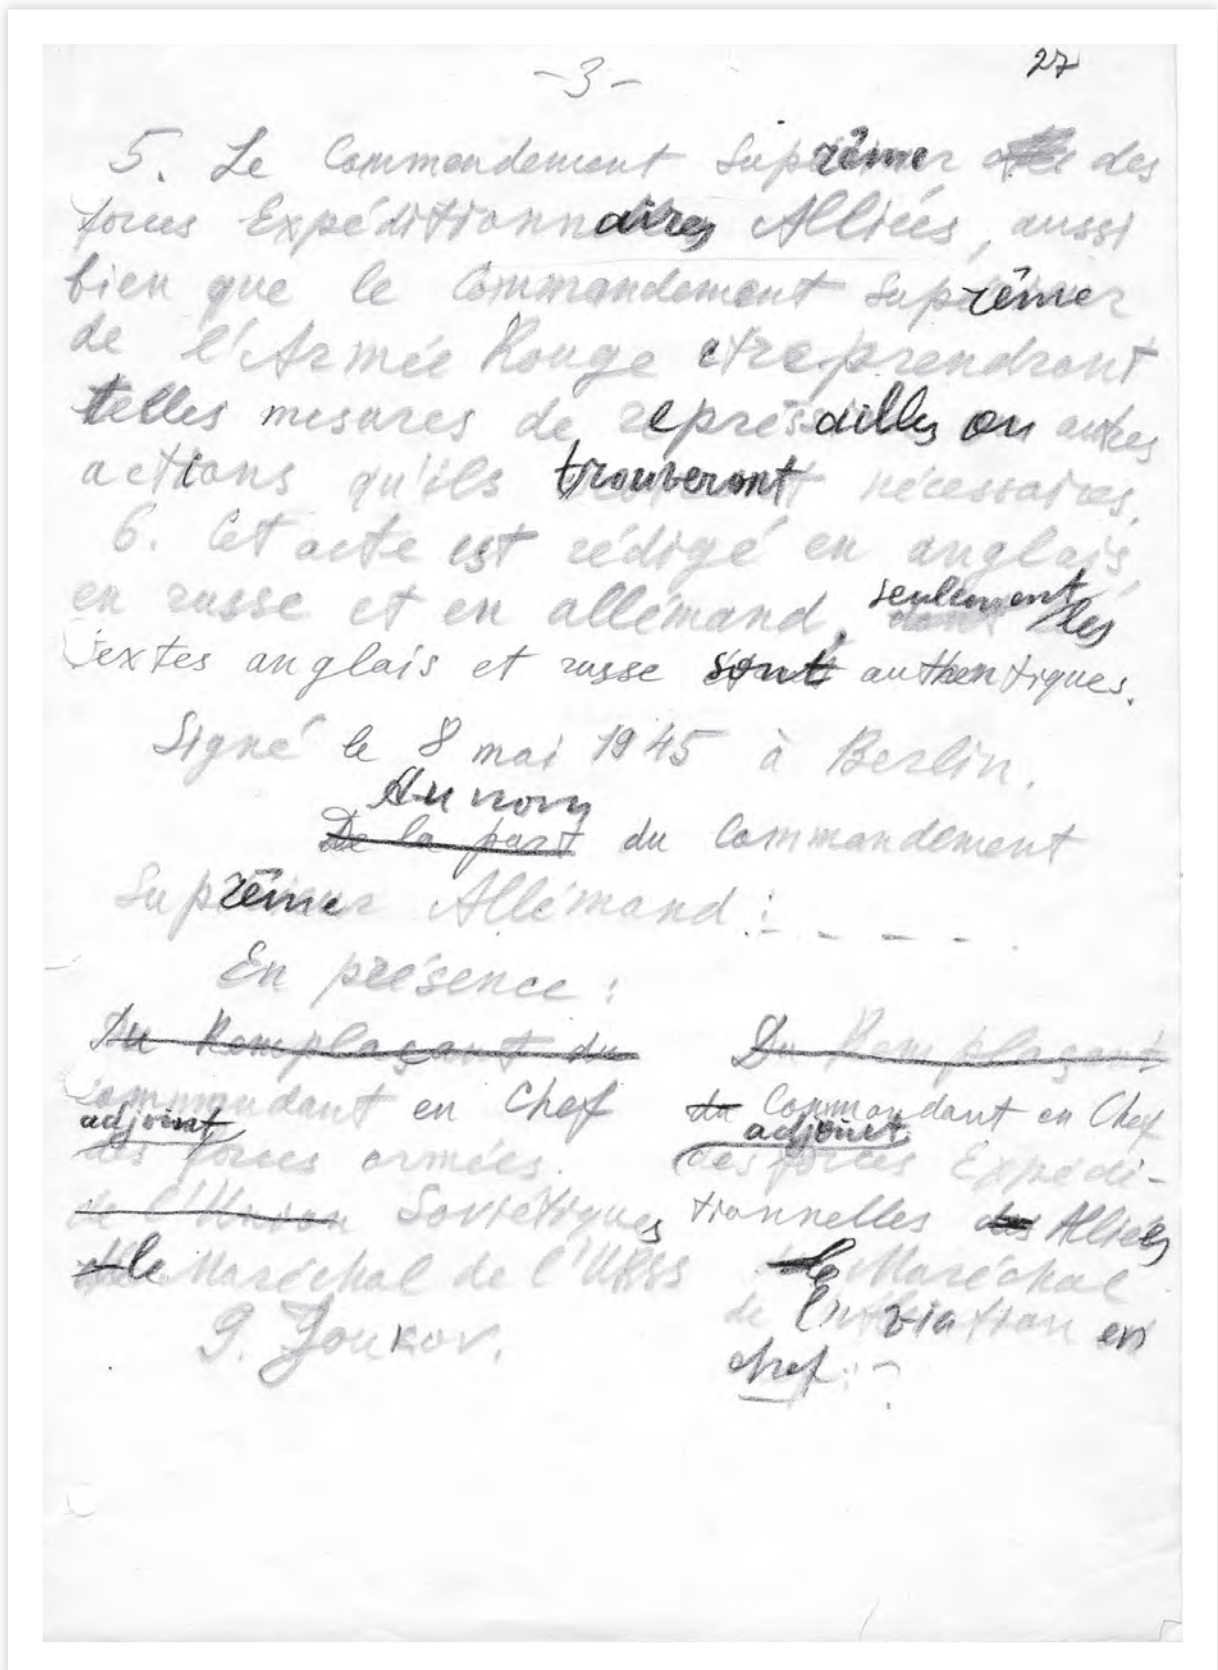 -3-
27
5. Le Commandement Suprême des
forces Expéditionnaires Alliées, aussi
bien que le Commandement Suprême
de l'Armée Rouge etreprendront
telles mesures de représailles ou autres
actions qu'ils trouveront nécessaires.
6. Cet acte est rédigé en anglais,
en russe et en allémand, seulement les
textes anglais et russe sont authentiques.
Signé le 8 mai 1945 à Berlin.
Au nom
De la part du Commandement
Suprême Allémand : - - - -
En présence :
Du Remplaçant du
Commandant en Chef
adjoint
des forces armées
de l'Union Soviétiques
le Maréchal de l'URSS
G. Joukov.
Du Remplaçant
du Commandant en Chef
adjoint
des forces Expédi-
tionnelles des Alliées
le Maréchal
de en
chef :